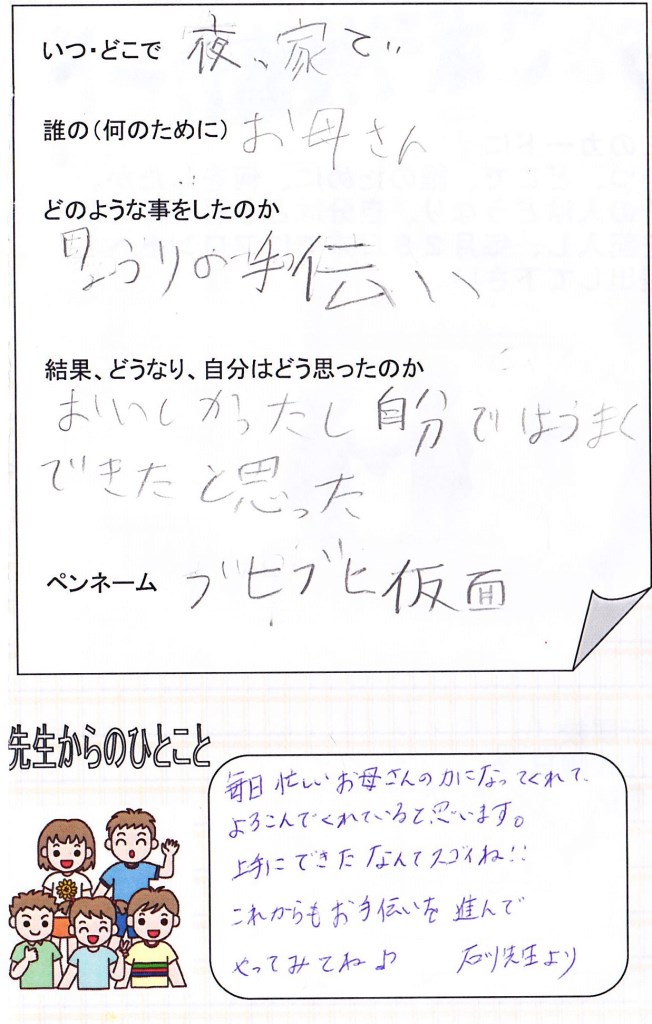 いつ・どこで 夜、家で
誰の(何のために) お母さん
どのような事をしたのか
りょうりの手伝い
結果、どうなり、自分はどう思ったのか
おいしかったし自分ではうまく
できたと思った
ペンネーム ブヒブヒ仮面
先生からのひとこと
毎日忙しいお母さんの力になってくれて、
よろこんでくれていると思います。
上手にできたなんてスゴイね!!
これからもお手伝いを進んで
やってみてね♪ 石川先生より